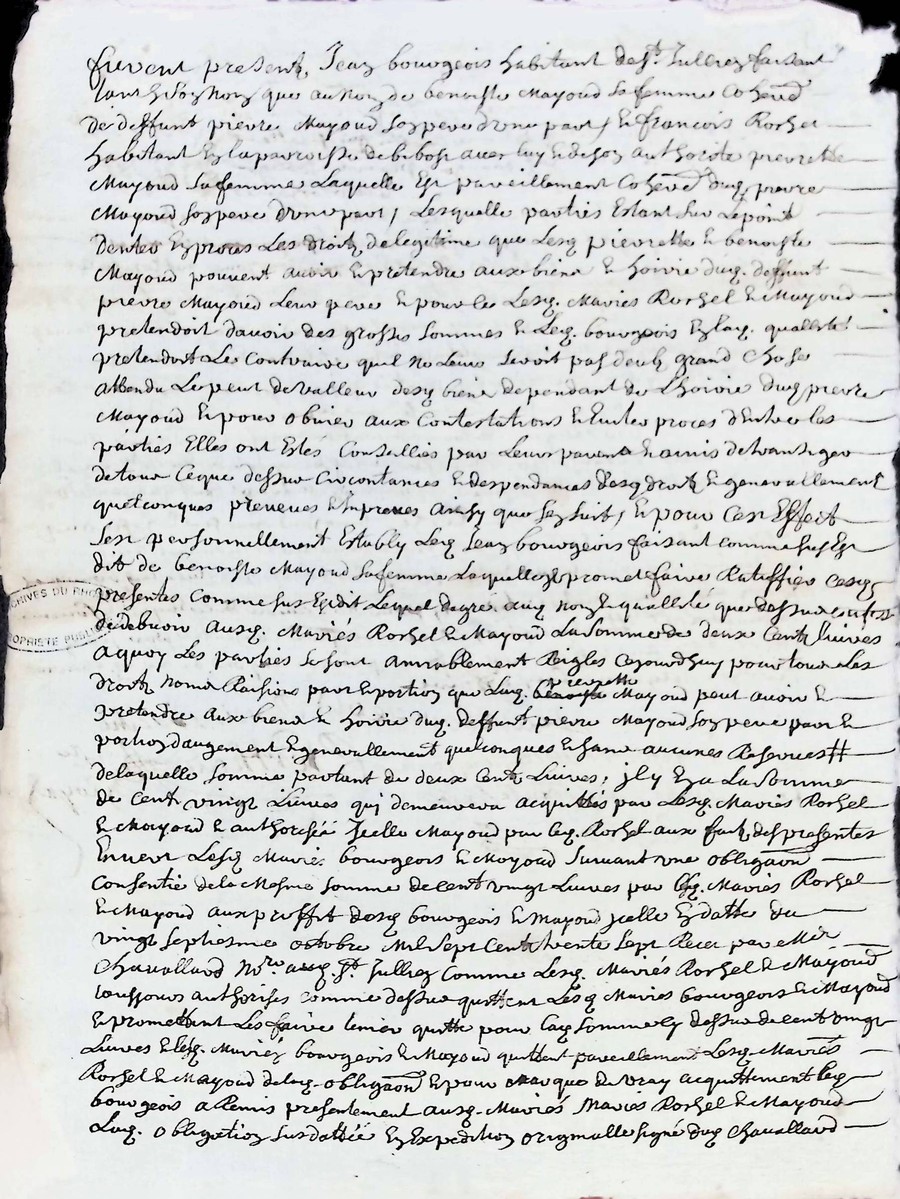 furent present, Jean bourgeois habitant de st. Jullien faisant
tant en son nom que au nom de benoiste Mayoud sa femme Cohered
de deffunt pierre Mayoud son pere d'une part / et francois Rorhet
habitant en la parroisse de bibost avec luy et de son authorité pierrette
Mayoud sa femme Laquelle Est pareillement Cohered dudq pierre
Mayoud son pere d'une part / Lesquelle parties Estant sur Le point
dentrer En proces Les droitz de legitime que Lesq pierrette et benoiste
Mayoud peuvent avoir et pretendre aux biens et hoirie duq. deffunt
pierre Mayoud Leur pere et pour les Lesq. Mariés Rorhel et Mayoud
pretendoit davoir des grosses sommes et Leq. bourgeois En laq. quallité
pretendoit Le Contraire quil ne Leur seroit pas deub grand Chose
attendu Le peut de valleur desq biens dependant de L'hoirie duq pierre
Mayoud et pour obvier aux Contestations et Eviter proces d'Entre les
parties Elles ont Estés Conseillies par Leurs parents et amis de transiger
de tout Ce que dessus Circontances et despendances desq droitz et generallement
quelconques preveues et Impreves Ainsy que sen suit / et pour Cest Effect
sest personnellement Estably Leq Jean bourgeois faisant comme sus Est
dit de benoiste Mayoud sa femme Laquelle promet faire Rattiffier Cesq
presentes Comme sus Est dit Lequel de gré auq nom et quallité que dessus
de debvoir ausq. Mariés Rorhel et Mayoud La somme de deux Centz Livres
a quoy Les parties se sont amiablement Reigles Cejourdhuy pour tous Les
droitz noms Raisions part et portion que Laq. pierrette Mayoud peut avoir et
pretendre aux biens et hoirie duq. deffunt pierre Mayoud son pere part et
portion daugement et generallement quelconques et sans aucunes Reserves #
de laquelle somme partant de deux Centz Livres, jl y En a La somme
de Cent vingt Livres qui demeurera acquittés par Lesq. Mariés Rorhel
et Mayoud et authorisée Jcelle Mayoud par leq. Rorhel aux faitz des presentes
Envers Lesq Mariés bourgeois et Mayoud suivant une obligaon
Consentie de la Mesme somme de Cent vingt Livres par Lesq. Mariés Rorhel
et Mayoud aux proffit desq bourgeois et Mayoud jcelle En datte du
vingt septiesme octobre Mil Sept Centz trente sept Receu par Me
Chavalland nore. auq. st. Jullien Comme Lesq. Mariés Rorhel et Mayoud
tousjours authorises comme dessus quittent Lesq Mariés bourgeois et Mayoud
et promettent Les faire tenir quitte pour laq somme cy dessus de cent vingt
Livres et lesq. Mariés bourgeois et Mayoud quittent pareillement Lesq. Mariés
Rorhel et Mayoud de laq. obligaon et pour Marque de vray acquittement leq
bourgeois a Remis presentement ausq. Mariés Mariés Rorhel et Mayoud
Laq. obligation sus dattée En Expedition originalle signé duq Chavalland